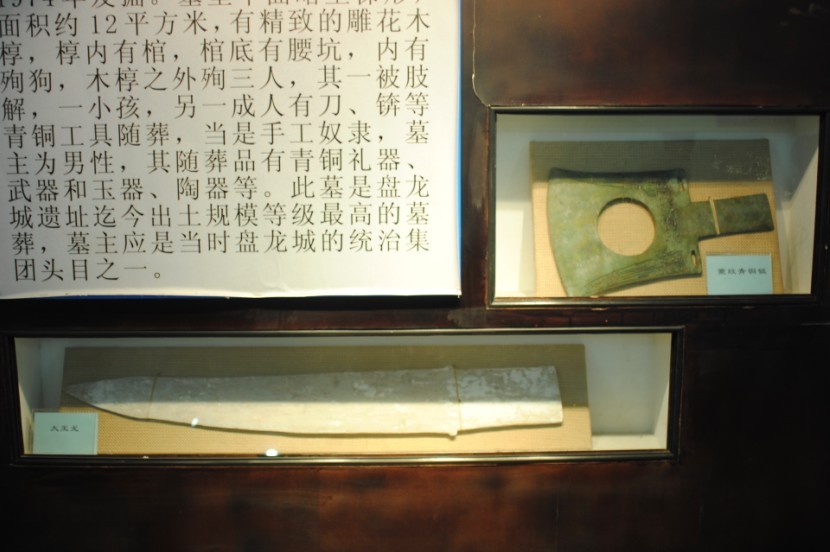 面积约12平方米,有精致的雕花木
椁，椁内有棺，棺底有腰坑，内有
殉狗，木椁之外殉三人，其一被肢
解，一小孩，另一成人有刀、锛等
青铜工具随葬，当是手工奴隶，墓
主为男性，其随葬品有青铜礼器、
武器和玉器、陶器等。此墓是盘龙
城遗址迄今出土规模等级最高的墓
葬，墓主应是当时盘龙城的统治集
团头目之一。
青铜钺
大玉戈